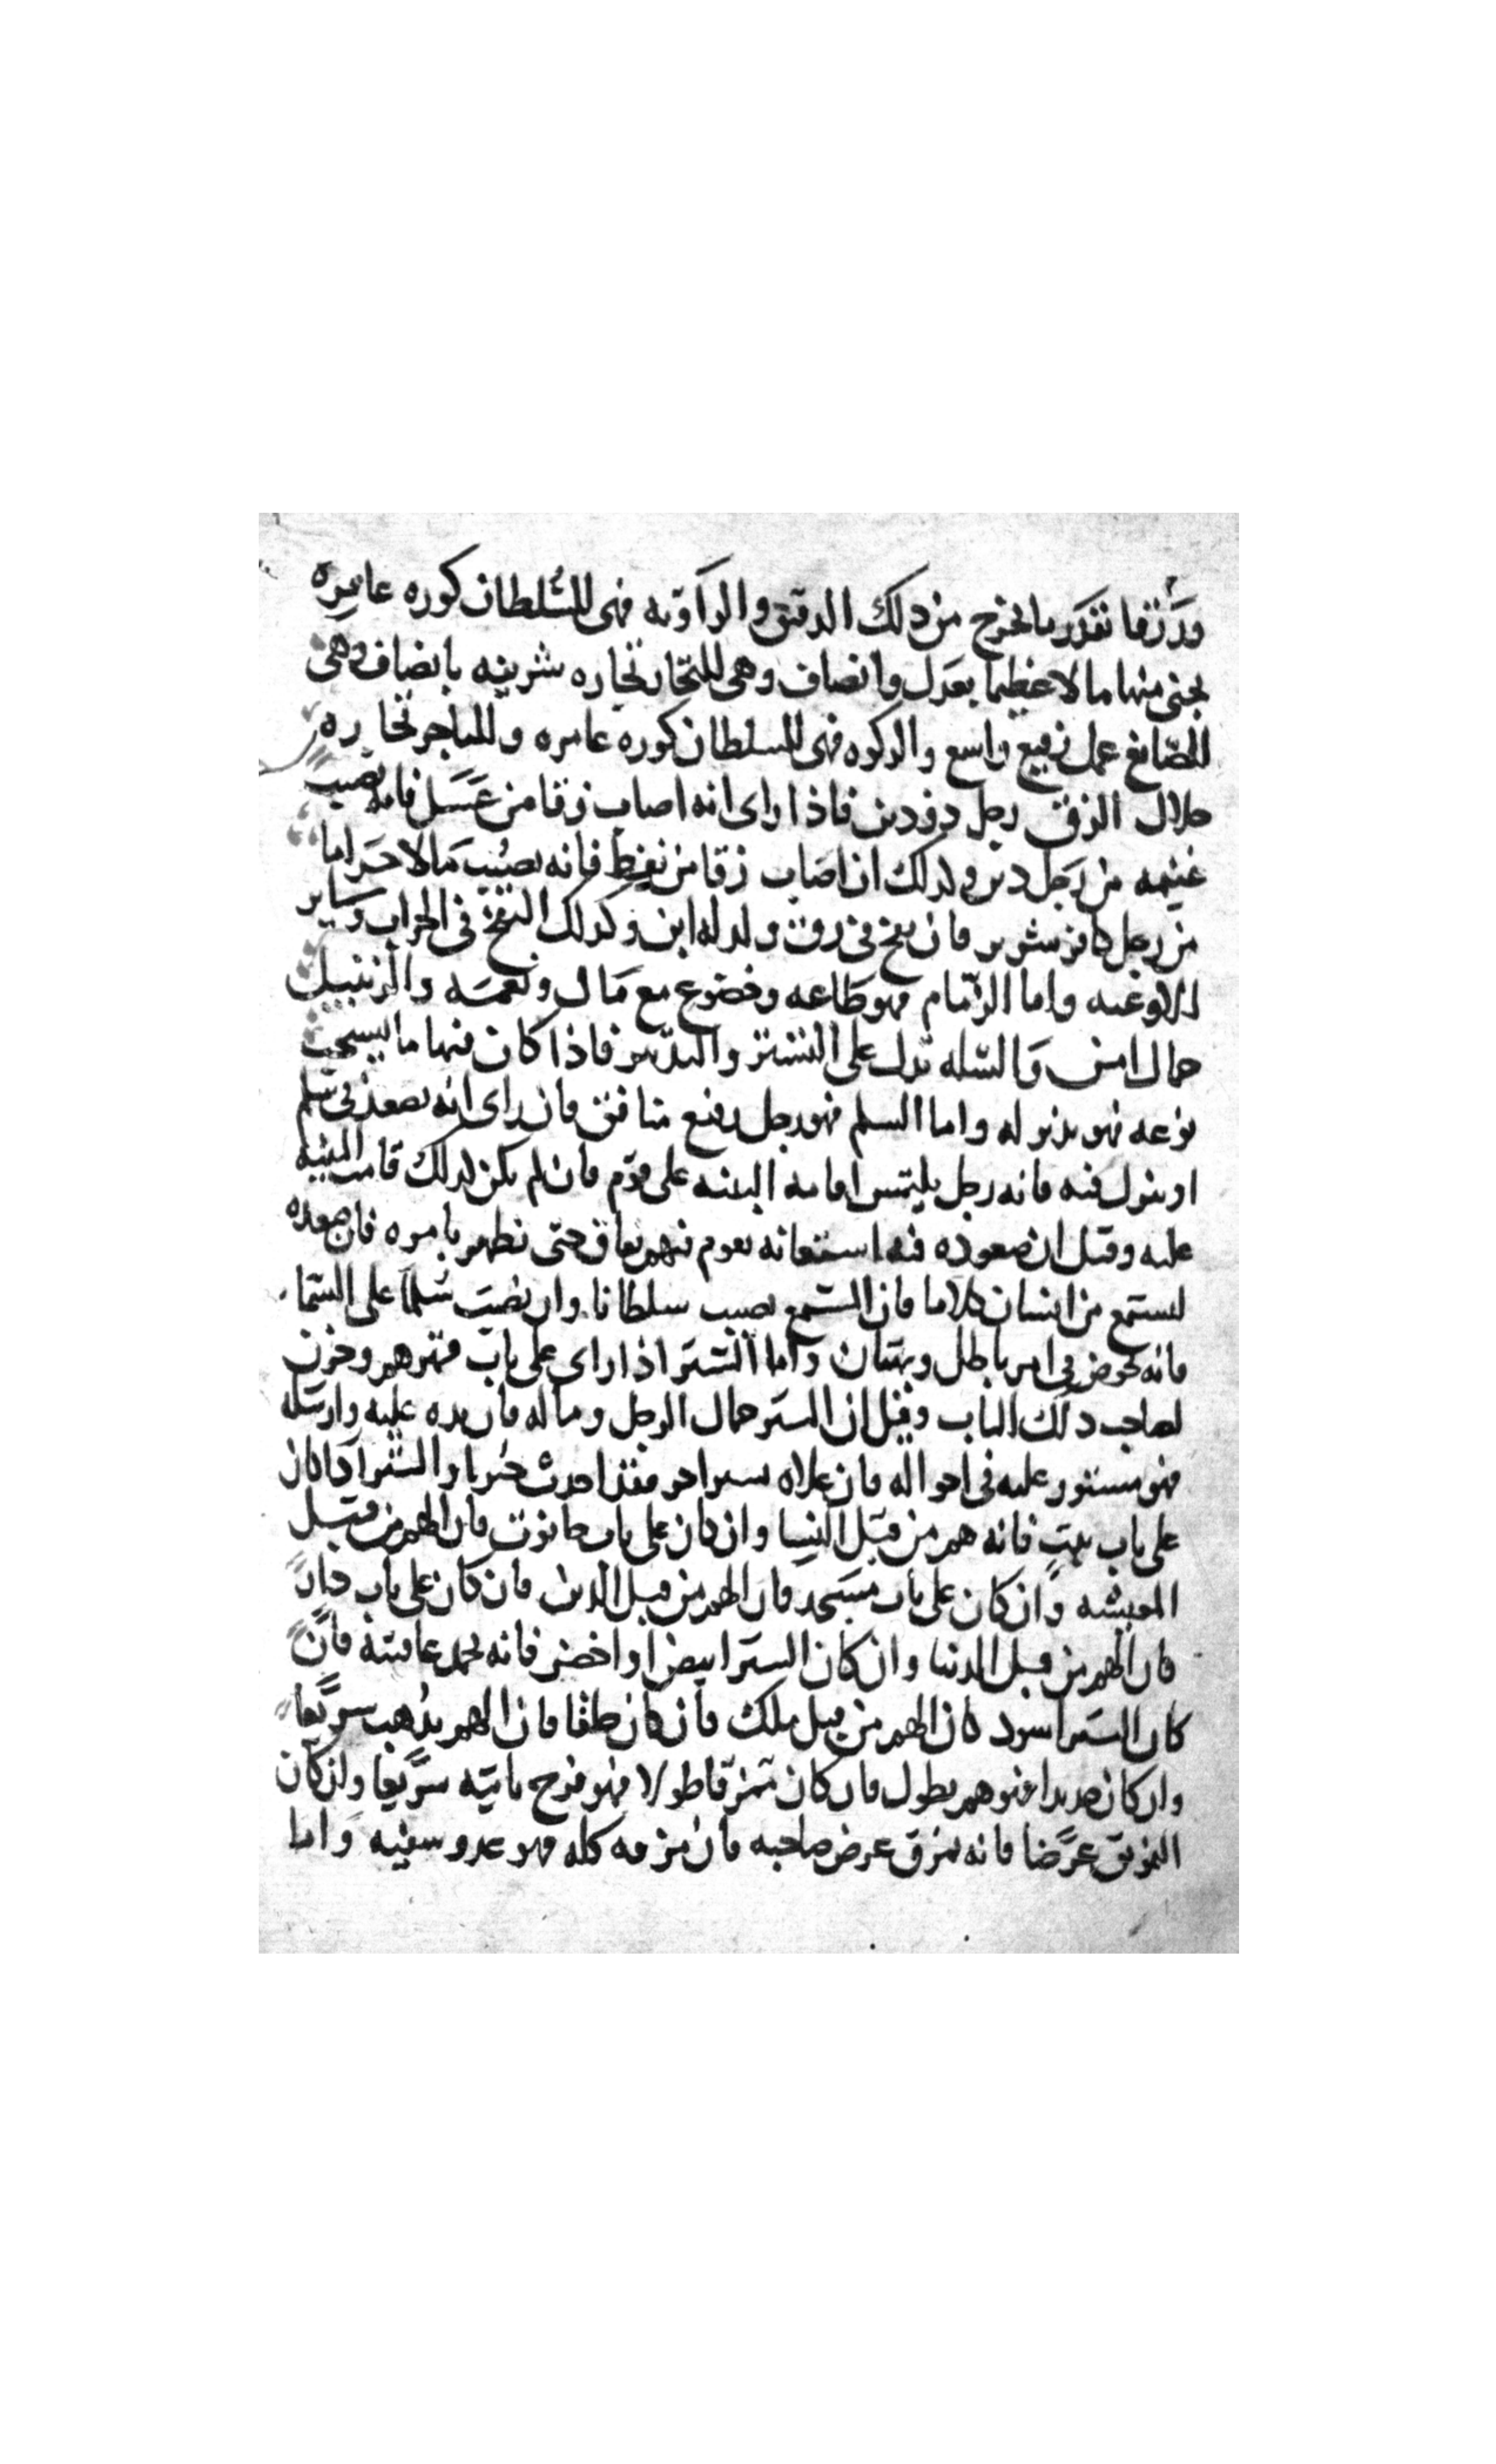 ورزقا بقدر ما يخرج من ذلك الدقيق والراويه فهى للسلطان كوره عامره
يجبى منها مالا عظيما بعدل وانصاف وهى للتجار تجاره شريفه بانصاف وهى
للصانع عمل رفيع واسع والركوه فهى للسلطان كوره عامره وللتاجر تجاره
حلال الزق رجل دو دين فاذا راى انه اصاب زقا من عسل فانه يصيب
غنيمه من رجل دين ولذلك ان اصاب زقا من نفط فانه يصيب مالا حراما
من رجل كافر شرير فان نفخ فى زق ولد له ابن وكذلك النفخ فى الجراب وساير
الاوعيه واما الزمام فهو طاعه وخضوع مع مال ونعمه والزنبيل
حمال امين والسله تدل على التستر والتدبير فاذا كان فيها ما يستحب
نوعه فهو بذير له واما السلم فهو رجل رفيع منافق فان راى انه يصعد فى سلم
او ينزل فيه فانه رجل يلتمس اقامه البينه على قوم فان لم يكن لذلك قامت البينه
عليه وقيل ان صعوده فيه استعانه بقوم فيهم نفاق حتى يظهر بامره فان صعده
ليستمع من انسان كلاما فان المستمع يصيب سلطانا وان نصب سلما على السما
فانه يخوض فى امر باطل وبهتان واما الستر اذا راى على باب فهو هم وحزن
لصاحب ذلك الباب وقيل ان الستر جمال الرجل وماله فان مده عليه وارسله
فهو مستور عليه فى احواله فان علاه سترا احر فقد احدث والستر اذا كان
على باب بيت فانه هم من قبل النسا وان كان على باب حانوت فان الهم من قبل
المعيشه وان كان على باب مسجد فان الهم من قبل الدين فان كان على باب دار
فان الهم من قبل الدنيا وان كان الستر ابيض او اخضر فانه يحمد عاقبته فان
كان الستر اسود كان الهم من قبل ملك فان كان خلقا فان الهم يذهب سريعا
وان كان جديدا فهو هم يطول فان كان تمزقا طولا فهو فرح ياتيه سريعا وان كان
التمزيق عرضا فانه تمزق عرض صاحبه فان مزقه كله فهو عدو سفيه واما